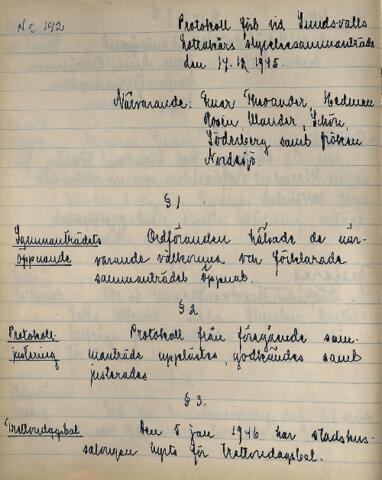 No 192
Protokoll förb vid Sundsvalls
Lottakårs styrelsesammanträde
den 17.12 1945.
Närvarande: Fruar Thorander, Hedman
Rosén, Wander, Schön,
Söderberg samt fröken
Nordsjö.
§ 1
Sammanträdets öppnande
Ordföranden hälsade de när-
varande välkomna och förklarade
sammanträdet öppnat.
§ 2
Protokoll-
justering
Protokoll från föregående sam-
manträde upplästes, godkändes samt
justerades
§ 3.
Trettondagsbal
Den 5 jan 1946 har stadshus-
salongen hyrts för Trettondagsbal.